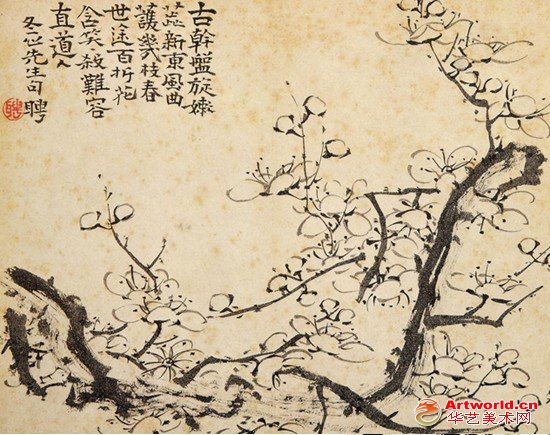 古幹盤旋嫩
蕊新東風曲
護幾枝春
世途百折花
含笑難容
直道人
冬心先生句 聘
Artworld.cn
华艺美术网